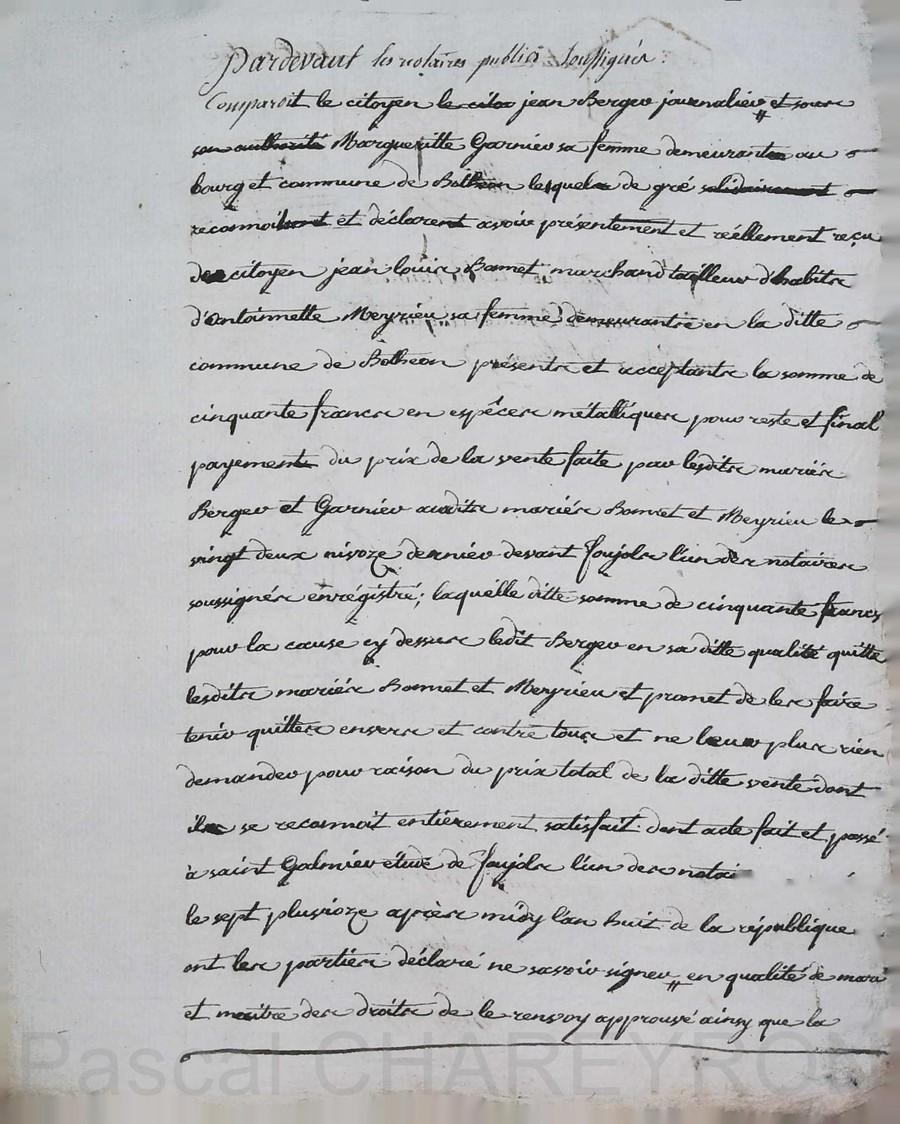 Pardevant les notaires publics soussignés :
Comparoit le citoyen le citoy jean Berger journalier et sous
son authorité Margueritte Garnier sa femme demeurants au
bourg et commune de Botheon lesquels de gré solidairement
reconnoissent et déclarent avoir présentement et réellement reçu
des citoyen jean louis Bonnet marchand tailleur d'habits
d'antoinnette Meyrieu sa femme demeurants en la ditte
commune de Botheon présents et acceptants la somme de
cinquante francs en espêces métalliques pour reste et final
payement du prix de la vente faite par lesdits mariés
Berger et Garnier audits mariés Bonnet et Meyrieu le
vingt deux nivoze dernier devant foujols l'un des notaires
soussignés enrégistré; laquelle ditte somme de cinquante francs
pour la cause cy dessus ledit Berger en sa ditte qualité quitte
lesdits mariés Bonnet et Meyrieu et promet de les faire
tenir quittes envers et contre tous et ne leur plus rien
demander pour raison du prix total de la ditte vente dont
ils se reconnoit entièrement satisfait. dont acte fait et passé
à saint Galmier étude de foujols l'un des notai
le sept pluvioze après midy l'an huit de la république
ont les parties déclaré ne savoir signer en qualité de mari
et maitre des droits de le renvoy approuvé ainsy que la
Pascal CHAREYRON